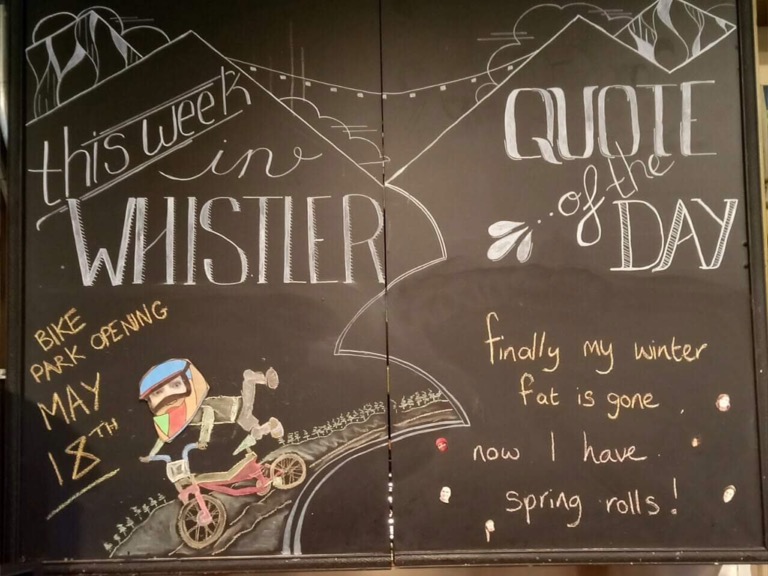 this week
in
WHISTLER
BIKE
PARK OPENING
MAY
18TH
QUOTE
of the
DAY
finally my winter
fat is gone
now I have
spring rolls!